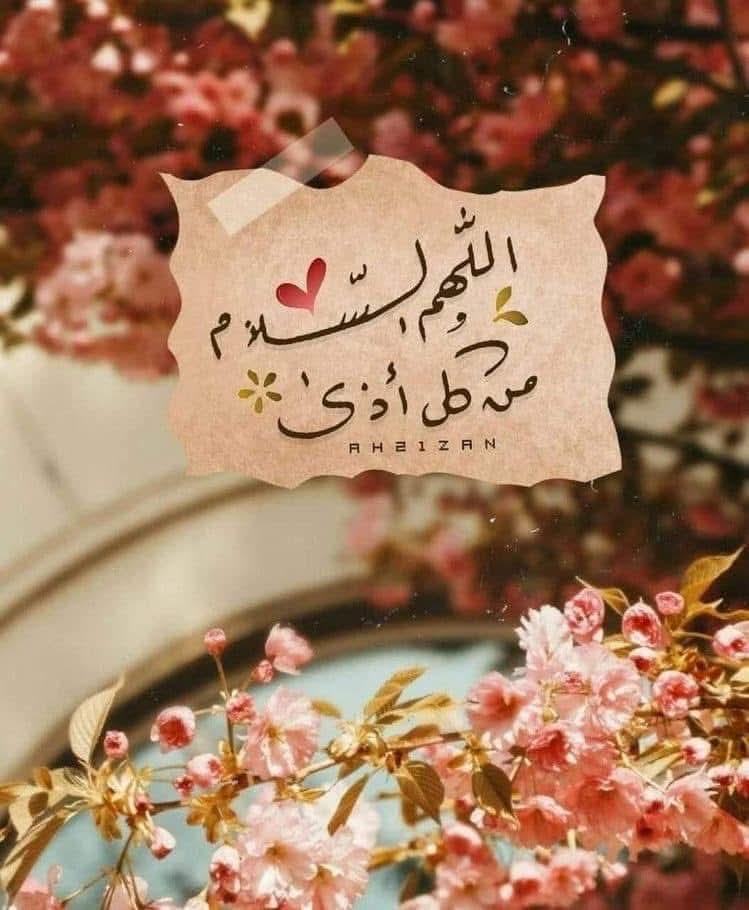 اللّهم و السّلام
من كل أذىٰ
AH21ZAN